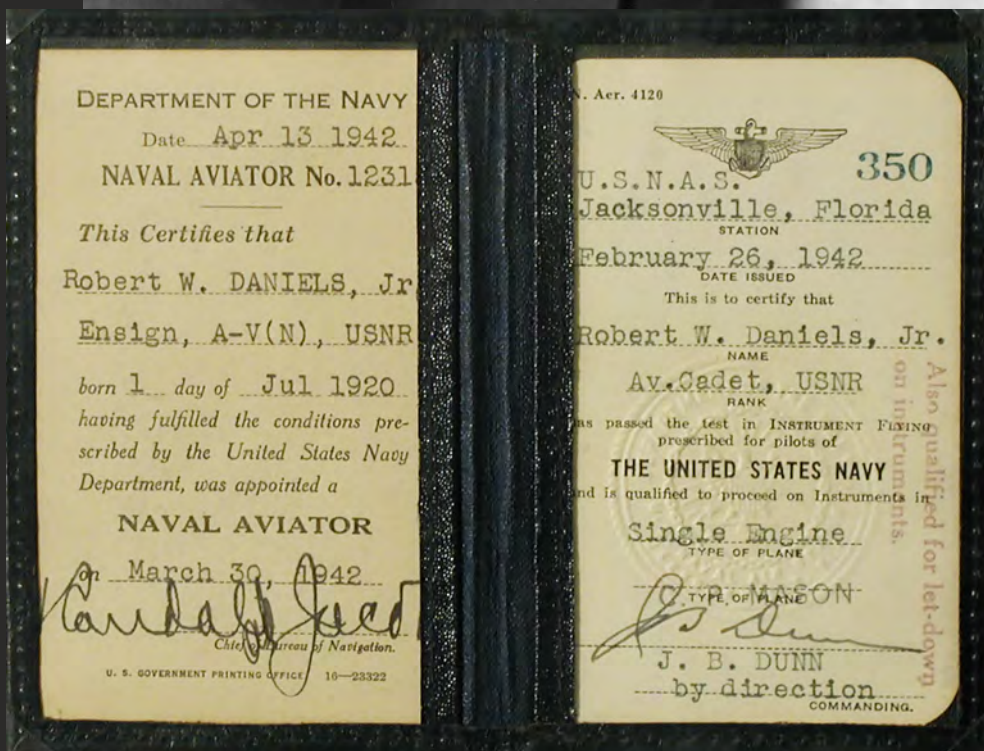 DEPARTMENT OF THE NAVY
Date Apr 13 1942
NAVAL AVIATOR No. 1231
This Certifies that
Robert W. DANIELS, Jr
Ensign, A-V(N), USNR
born 1 day of Jul 1920
having fulfilled the conditions pre-
scribed by the United States Navy
Department, was appointed a
NAVAL AVIATOR
on March 30, 1942
Chief of Bureau of Navigation.
U. S. GOVERNMENT PRINTING OFFICE 16—23322
N. Aer. 4120
350
U.S.N.A.S.
Jacksonville, Florida
STATION
February 26, 1942
DATE ISSUED
This is to certify that
Robert W. Daniels, Jr.
NAME
Av.Cadet, USNR
RANK
as passed the test in INSTRUMENT FLYING
prescribed for pilots of
THE UNITED STATES NAVY
nd is qualified to proceed on Instruments in
Single Engine
TYPE OF PLANE
C. P. MASON
TYPE OF PLANE
J. B. DUNN
by direction
COMMANDING.
Also qualified for let-down
on instruments.